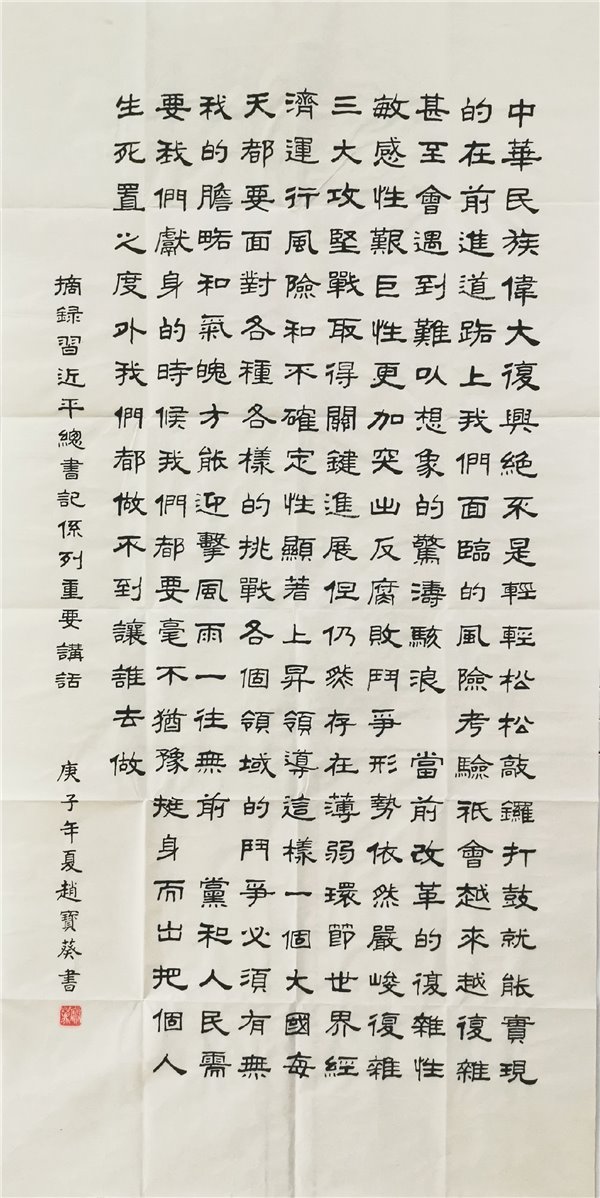 中華民族偉大復興絕不是輕輕松松敲鑼打鼓就能實現
的在前進道路上我們面臨的風險考驗祇會越來越復雜
甚至會遇到難以想象的驚濤駭浪 當前改革的復雜性
敏感性艱巨性更加突出反腐敗鬥爭形勢依然嚴峻復雜
三大攻堅戰取得關鍵進展但仍然存在薄弱環節世界經
濟運行風險和不確定性顯著上昇領導這樣一個大國每
天都要面對各種各樣的挑戰各個領域的鬥爭必須有無
我的膽略和氣魄才能迎擊風雨一往無前 黨和人民需
要我們獻身的時候我們都要毫不猶豫挺身而出把個人
生死置之度外我們都做不到讓誰去做
摘錄習近平總書記係列重要講話 庚子年夏趙寶葵書